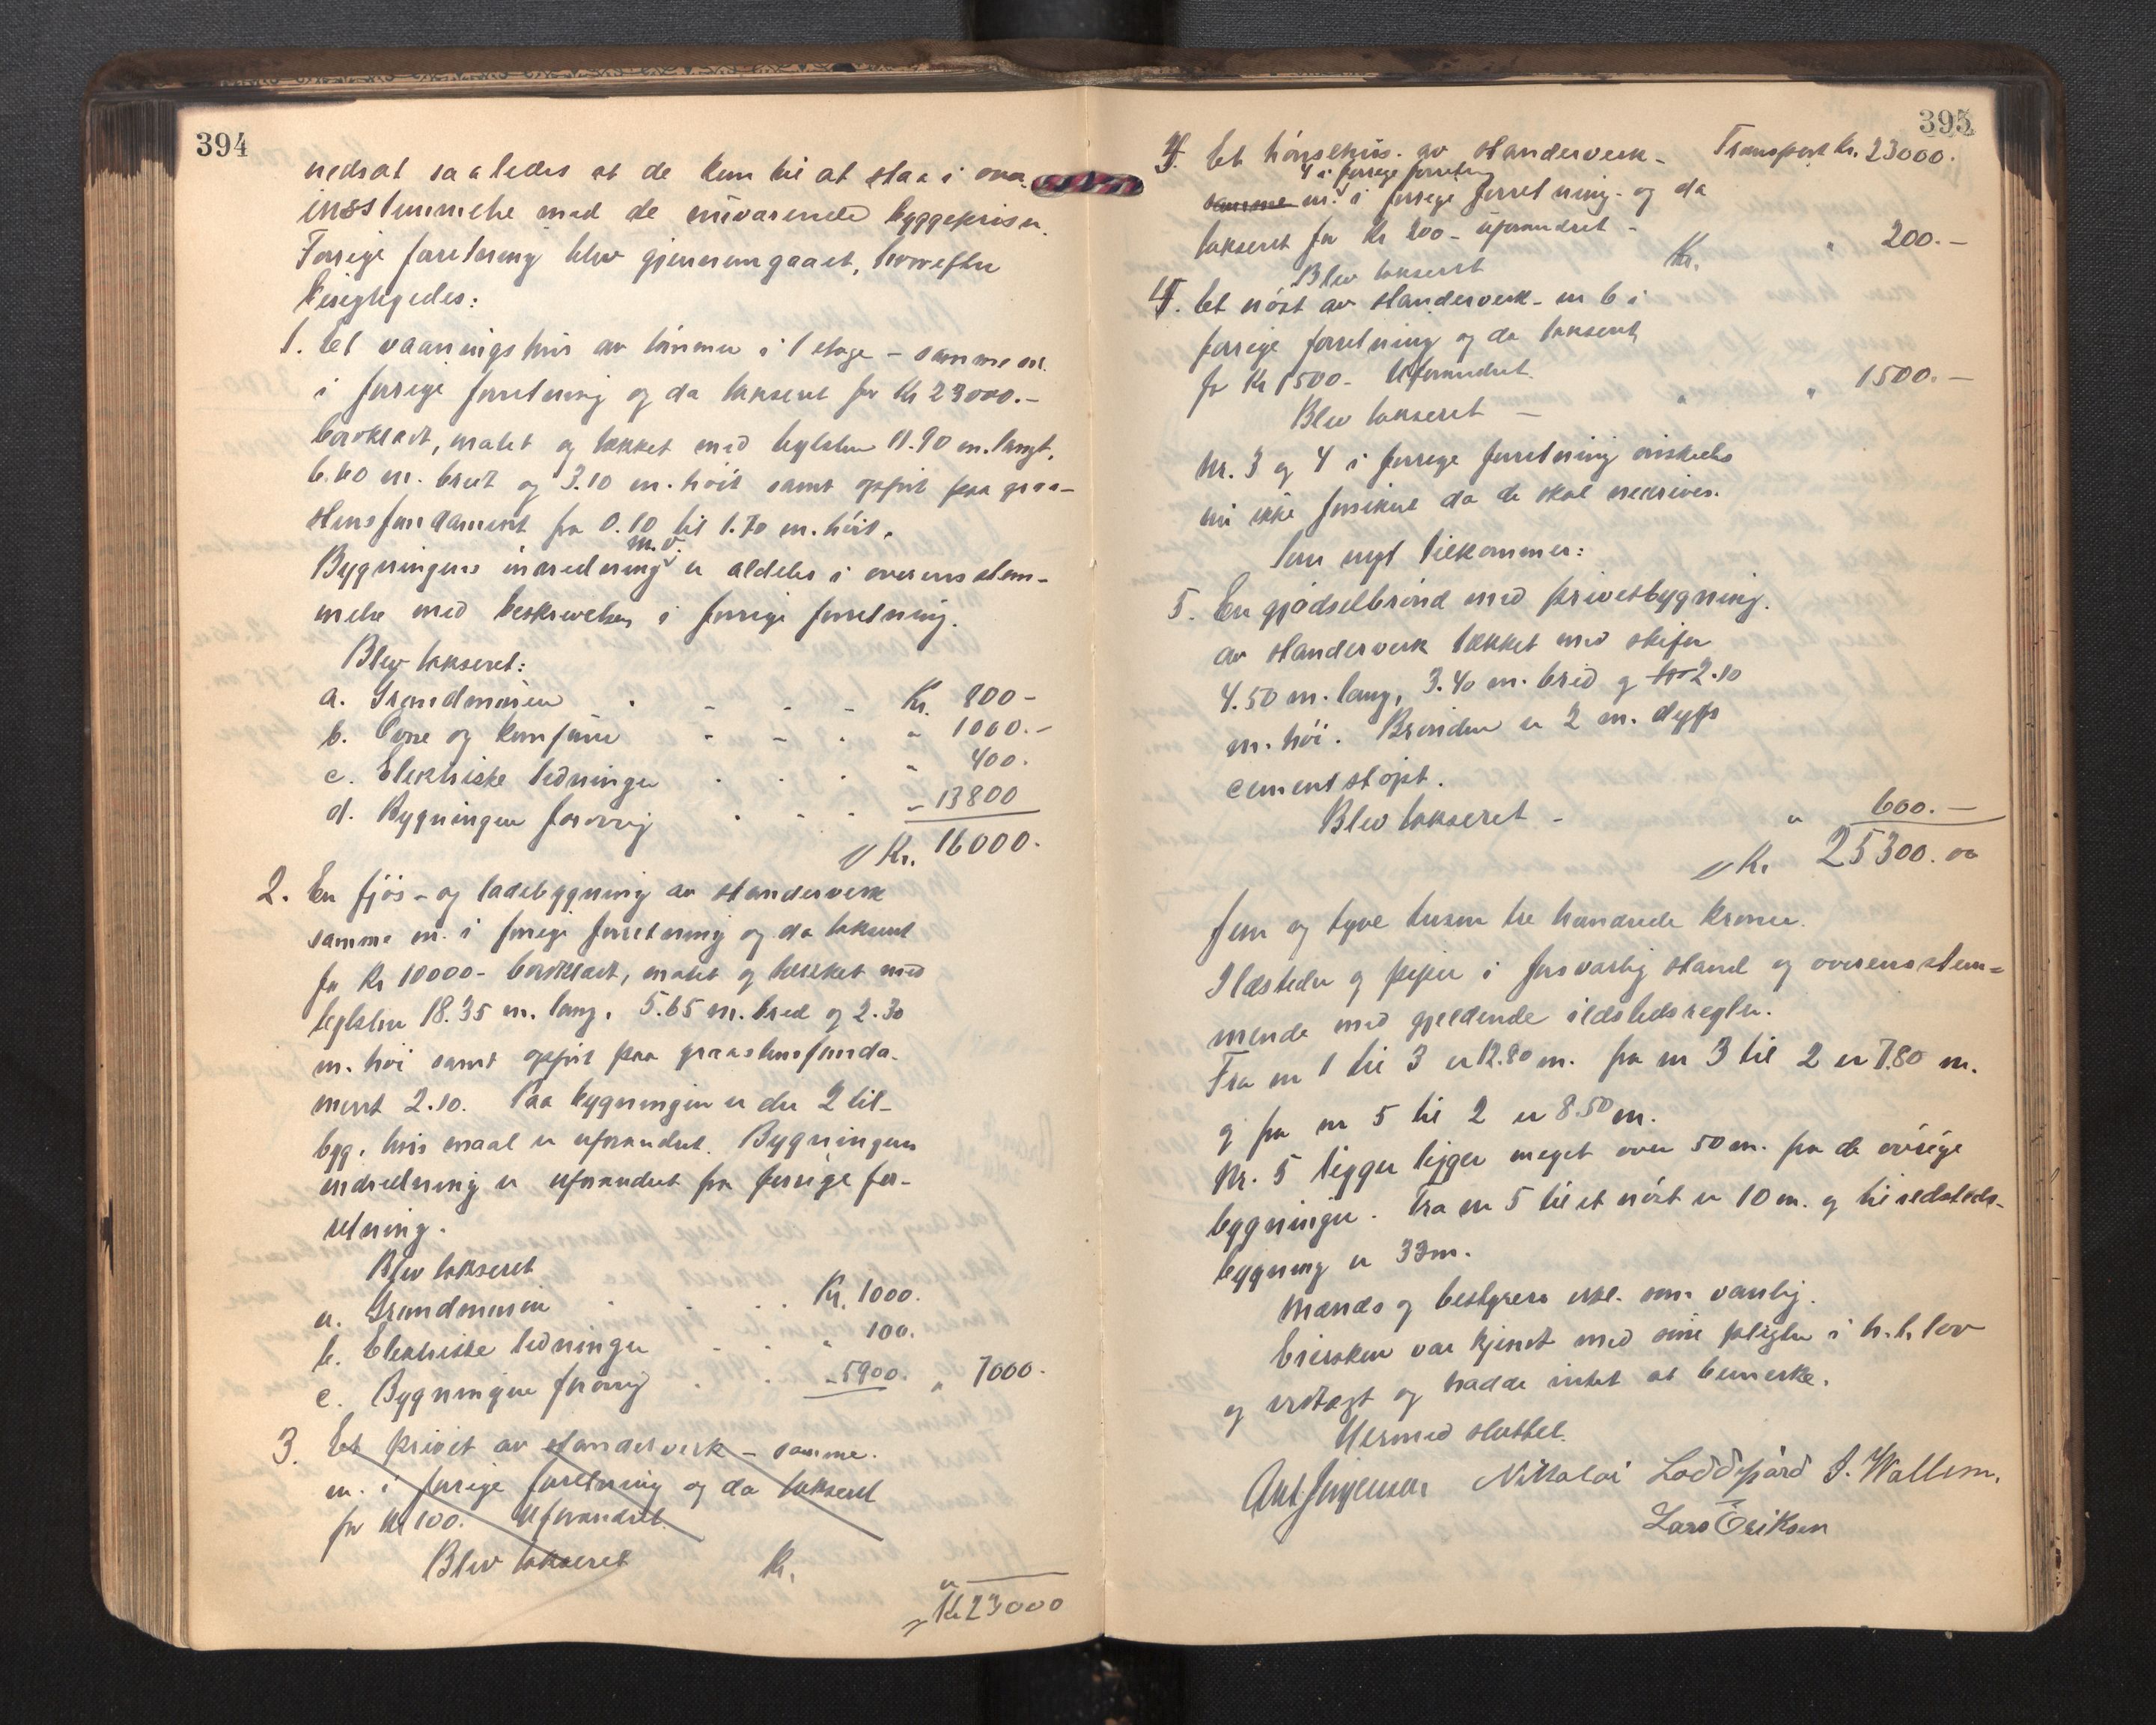 394
nedsat saaledes at de kun til at staa i over-
insstemmelse med de nuværende byggepriser.
Forrige forretning blev gjennemgaaet, hvorefter
besigtigedes:
1. Et vaaningshus av tømmer i 1 etage - samme nr.
i forrige forretning og da takseret for Kr 23000.-
bordklædt, malet og tækket med teglsten 11.90 m. langt,
6.60 m. bredt og 3.10 m. høit samt opført paa graa-
stensfundament fra 0.10 til 1.70 m. høit.
Bygningens inredning m.v. er aldeles i overensstem-
melse med beskrivelsen i forrige forretning.
Blev takseret:
a. Grundmuren - - - Kr. 800-
b. Ovne og komfurer - - - " 1000.-
c. Elektriske ledninger - - - " 400.
d. Bygningen forøvrig - - - " 13800
Kr. 16000.
2. En fjøs- og ladebygning av standerverk
samme nr. i forrige forretning og da takseret
for Kr 10000- bordklædt, malet og tækket med
teglsten 18.35 m. lang, 5.65 m. bred og 2.30
m. høi samt opført paa graastensfunda-
ment 2.10. Paa bygningen er der 2 til-
byg, hvis maal er uforandret. Bygningens
indredning er uforandret fra forrige for-
retning.
Blev takseret
a. Grundmuren - - - Kr. 1000.
b. Elektriske ledninger - - - " 100.
c. Bygningen forøvrig - - " 5900. " 7000.
3. Et privet av standerverk - samme
nr. i forrige forretning og da takseret
for Kr 100. Uforandret.
Blev takseret Kr.
"
Kr 23000
395
3. Et hønsehus av standerverk - Transport Kr. 23000.
4 i forrige forretning
samme nr. i forrige forretning - og da
takseret for Kr 200 - uforandret -
Blev takseret Kr. " 200.-
4. Et nøst av standerverk - nr 6 i
forrige forretning og da takseret
for Kr 1500 - Uforandret.
Blev takseret - " 1500.-
Nr. 3 og 4 i forrige forretning ønskedes
nu ikke forsikret da de skal nedrives.
Som nyt tilkommer:
5. En gjødselbrønd med privetbygning.
av standerverk tækket med skifer
4.50 m. lang, 3.40 m. bred og 2.10
m. høi. Brønden er 2 m. dyp
cementstøpt.
Blev takseret - " 600.-
Kr 25300.00
Fem og tyve tusen tre hundrede kroner.
Ildsteder og piper i forsvarlig stand og overensstem-
mende med gjeldende ildstedsregler.
Fra nr 1 til 3 er 12.80 m. fra nr 3 til 2 er 7.80 m.
og fra nr 5 til 2 er 8.50 m.
Nr. 5 ligger ligger meget over 50 m. fra de øvrige
bygninger. Fra nr 5 til et nøst er 10 m. og til ildsteds-
bygning er 33 m.
Mænds og bestyrers erkl. som vanlig.
Eiersken var kjendt med sine pligter i h.t. lov
og vedtægt og hadde intet at bemerke.
Hermed sluttet.
Ant Jørgensen Nikolai Loddgård J. Wallem.
Lars Eriksen